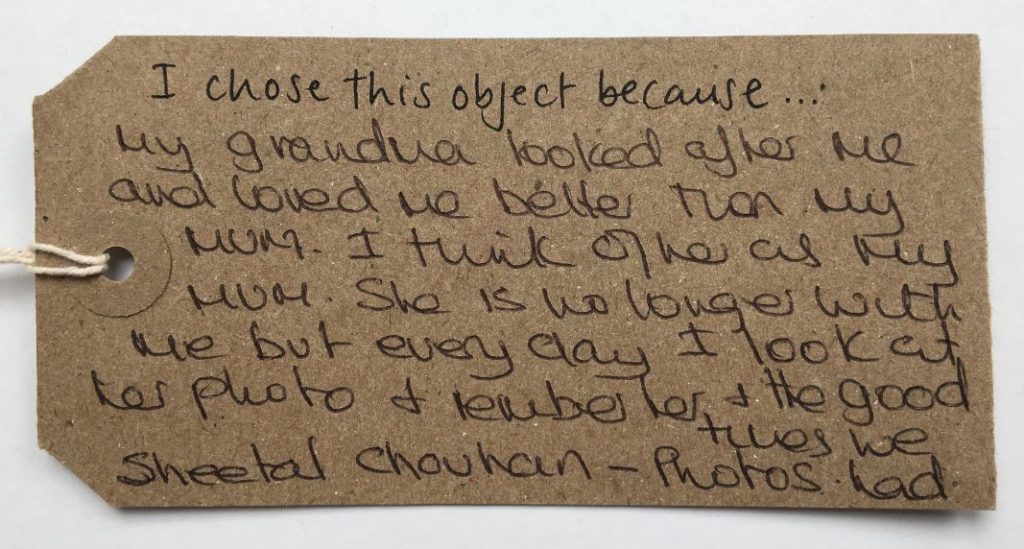 I chose this object because...
My grandma looked after me
and loved me better than my
mum. I think of her as my
mum. She is no longer with
me but every day I look at
her photo & rember her, & the good
times we
Sheetal Chouhan - Photos. had.